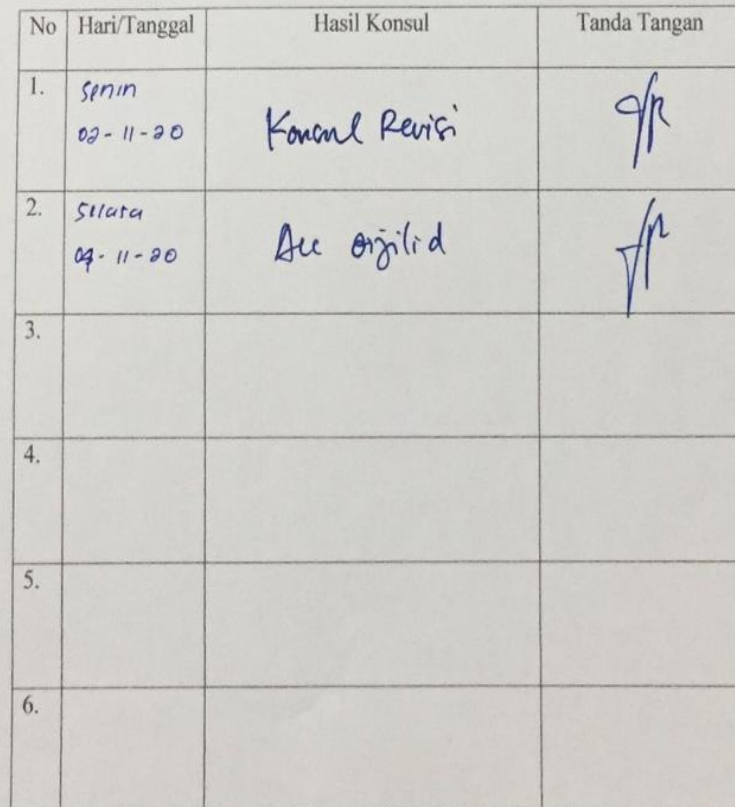 No Hari/Tanggal Hasil Konsul Tanda Tangan
1. Senin
02-11-20 Konsul Revisi
2. Selasa
-11-20 Acc dijilid
3.
4.
5.
6.